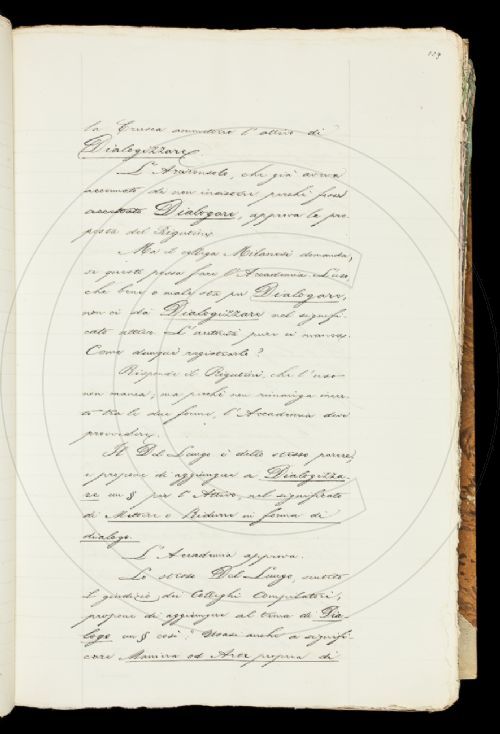 109
la Crusca ammettere l'attivo di
Dialogizzare.
L'Arciconsolo, che già aveva
accennato di non insistere perché fosse
accettato Dialogare, approva la pro-
posta del Rigutini.
Ma il collega Milanesi domanda,
se questo possa fare l'Accademia. L'uso
che bene o male sta per Dialogare,
non ci dà Dialogizzare nel signifi-
cato attivo. L'autorità pure ci manca.
Come dunque registrarlo?
Risponde il Rigutini, che l'uso
non manca; ma perché non rimanga incer-
tra le due forme, l'Accademia deve
provvedere.
Il Del Lungo è dello stesso parere,
e propone di aggiungere a Dialogizza-
re un § per l'Attivo, nel significato
di Mettere o Ridurre in forma di
dialogo.
L'Accademia approva.
Lo stesso Del Lungo, sentito
il giudizio dei Colleghi Compilatori,
propone di aggiungere al tema di Dia-
logo un § così: Usasi anche a signifi-
care Maniera od Arte propria di